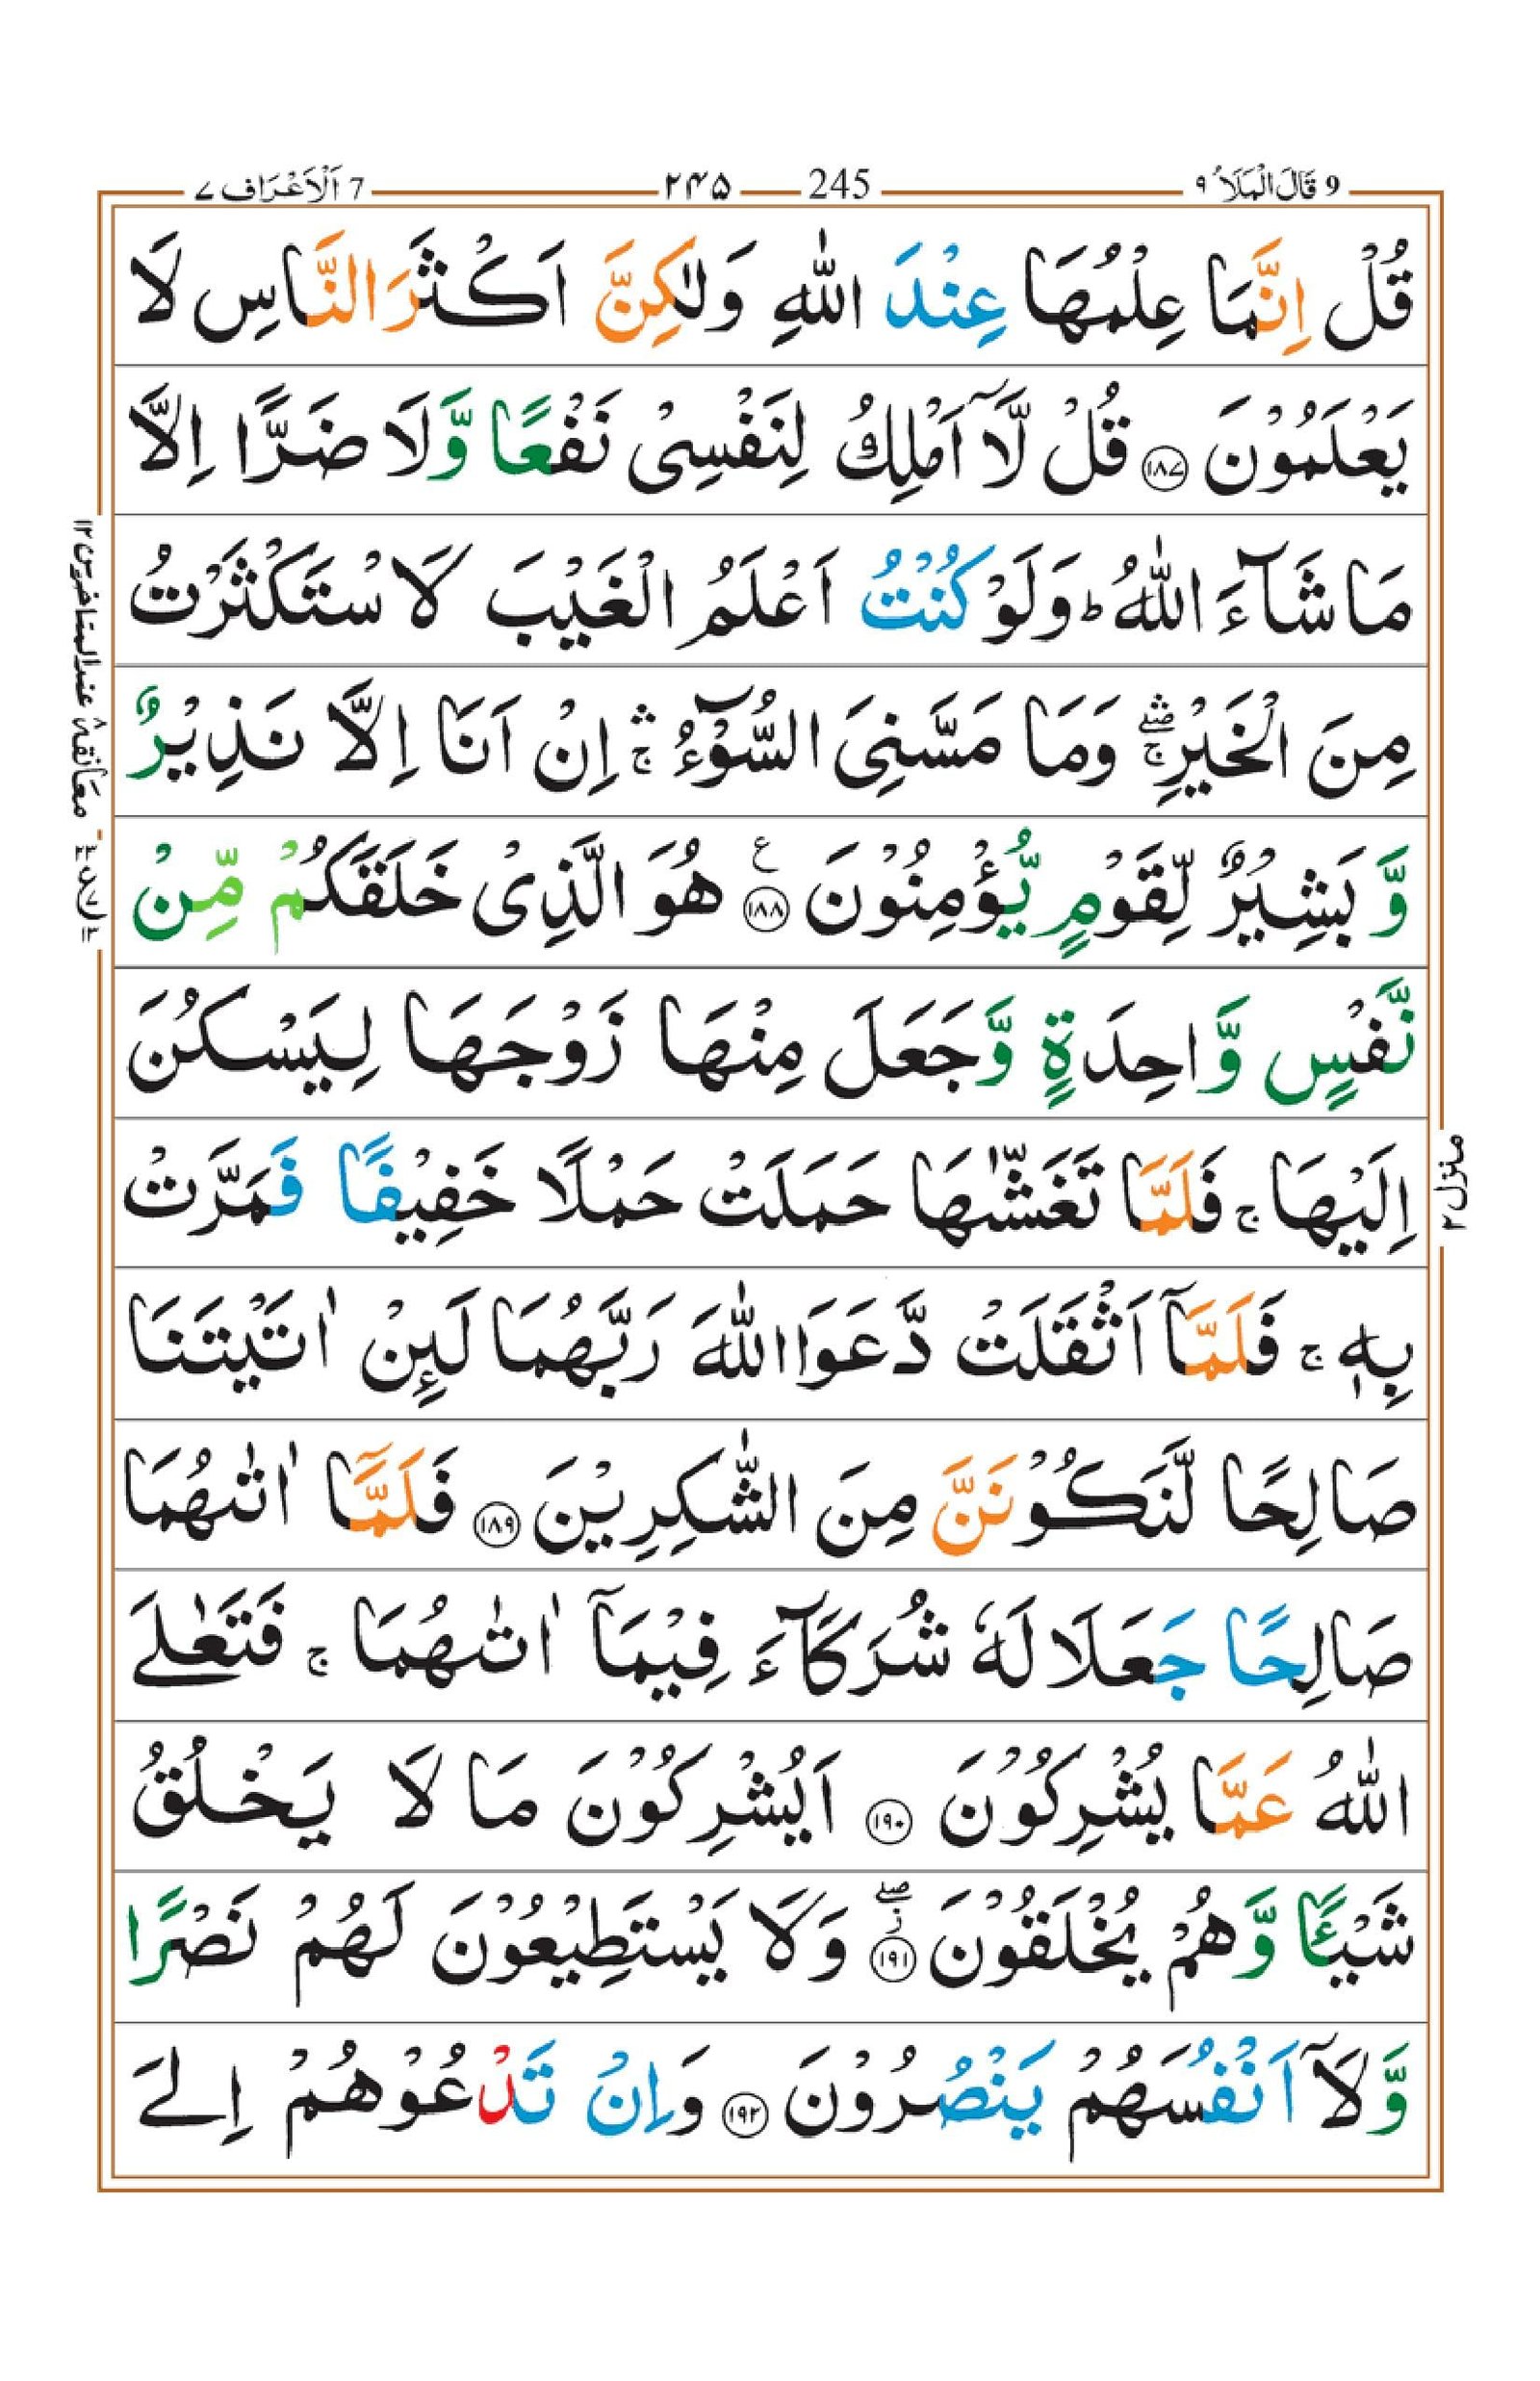 9 قَالَ الْمَلَاُ ۹
245 ۲۴۵
7 اَلْاَعْرَاف ۷
قُلْ اِنَّمَا عِلْمُهَا عِنْدَ اللّٰهِ وَلٰكِنَّ اَكْثَرَ النَّاسِ لَا
يَعْلَمُوْنَ ۱۸۷ قُلْ لَّاۤ اَمْلِكُ لِنَفْسِىْ نَفْعًا وَّلَا ضَرًّا اِلَّا
مَا شَآءَ اللّٰهُ ؕ وَلَوْ كُنْتُ اَعْلَمُ الْغَيْبَ لَا سْتَكْثَرْتُ
مِنَ الْخَيْرِ ۛۖۚ وَمَا مَسَّنِىَ السُّوْٓءُ ۛۚ اِنْ اَنَا اِلَّا نَذِيْرٌ
وَّ بَشِيْرٌ لِّقَوْمٍ يُّؤْمِنُوْنَ ۱۸۸ ع هُوَ الَّذِىْ خَلَقَكُمْ مِّنْ
نَّفْسٍ وَّاحِدَةٍ وَّجَعَلَ مِنْهَا زَوْجَهَا لِيَسْكُنَ
اِلَيْهَا ۚ فَلَمَّا تَغَشّٰٮهَا حَمَلَتْ حَمْلًا خَفِيْفًا فَمَرَّتْ
بِهٖ ۚ فَلَمَّاۤ اَثْقَلَتْ دَّعَوَا اللّٰهَ رَبَّهُمَا لَٮِٕنْ اٰتَيْتَنَا
صَالِحًا لَّنَكُوْنَنَّ مِنَ الشّٰكِرِيْنَ ۱۸۹ فَلَمَّاۤ اٰتٰٮهُمَا
صَالِحًا جَعَلَا لَهٗ شُرَكَآءَ فِيْمَاۤ اٰتٰٮهُمَا ۚ فَتَعٰلَى
اللّٰهُ عَمَّا يُشْرِكُوْنَ ۱۹۰ اَيُشْرِكُوْنَ مَا لَا يَخْلُقُ
شَيْــًٔا وَّهُمْ يُخْلَقُوْنَ ۱۹۱ ۖ ز وَلَا يَسْتَطِيْعُوْنَ لَهُمْ نَصْرًا
وَّلَاۤ اَنْفُسَهُمْ يَنْصُرُوْنَ ۱۹۲ وَاِنْ تَدْعُوْهُمْ اِلَى
معانقة عند المتاخرين ۱۲
منزل ۲